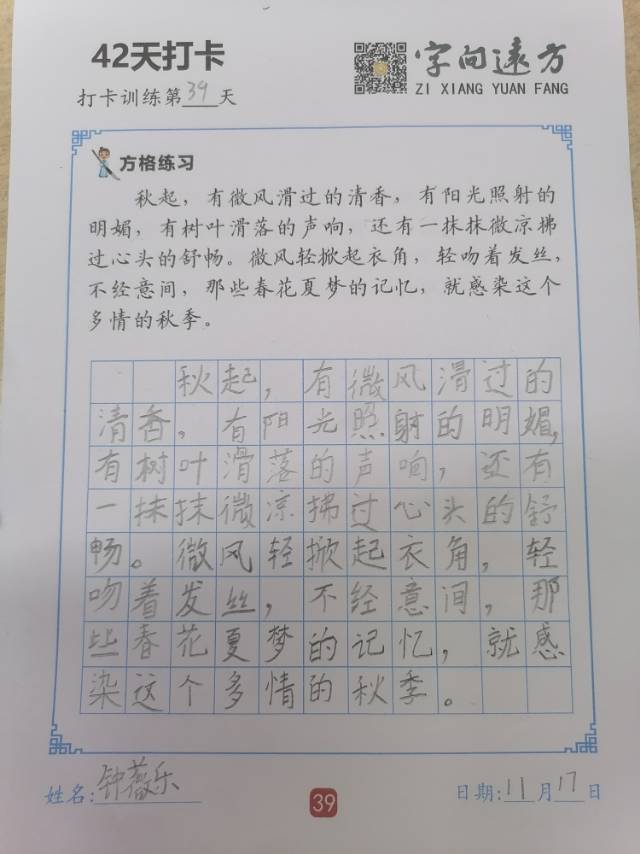 42天打卡
字向远方
ZI XIANG YUAN FANG
打卡训练第39天
方格练习
秋起，有微风滑过的清香，有阳光照射的
明媚，有树叶滑落的声响，还有一抹抹微凉拂
过心头的舒畅。微风轻掀起衣角，轻吻着发丝，
不经意间，那些春花夏梦的记忆，就感染这个
多情的秋季。
秋起，有微风滑过的
清香，有阳光照射的明媚，
有树叶滑落的声响，还有
一抹抹微凉拂过心头的舒
畅。微风轻掀起衣角，轻
吻着发丝，不经意间，那
些春花夏梦的记忆，就感
染这个多情的秋季。
姓名:钟薇乐
39
日期:11月17日